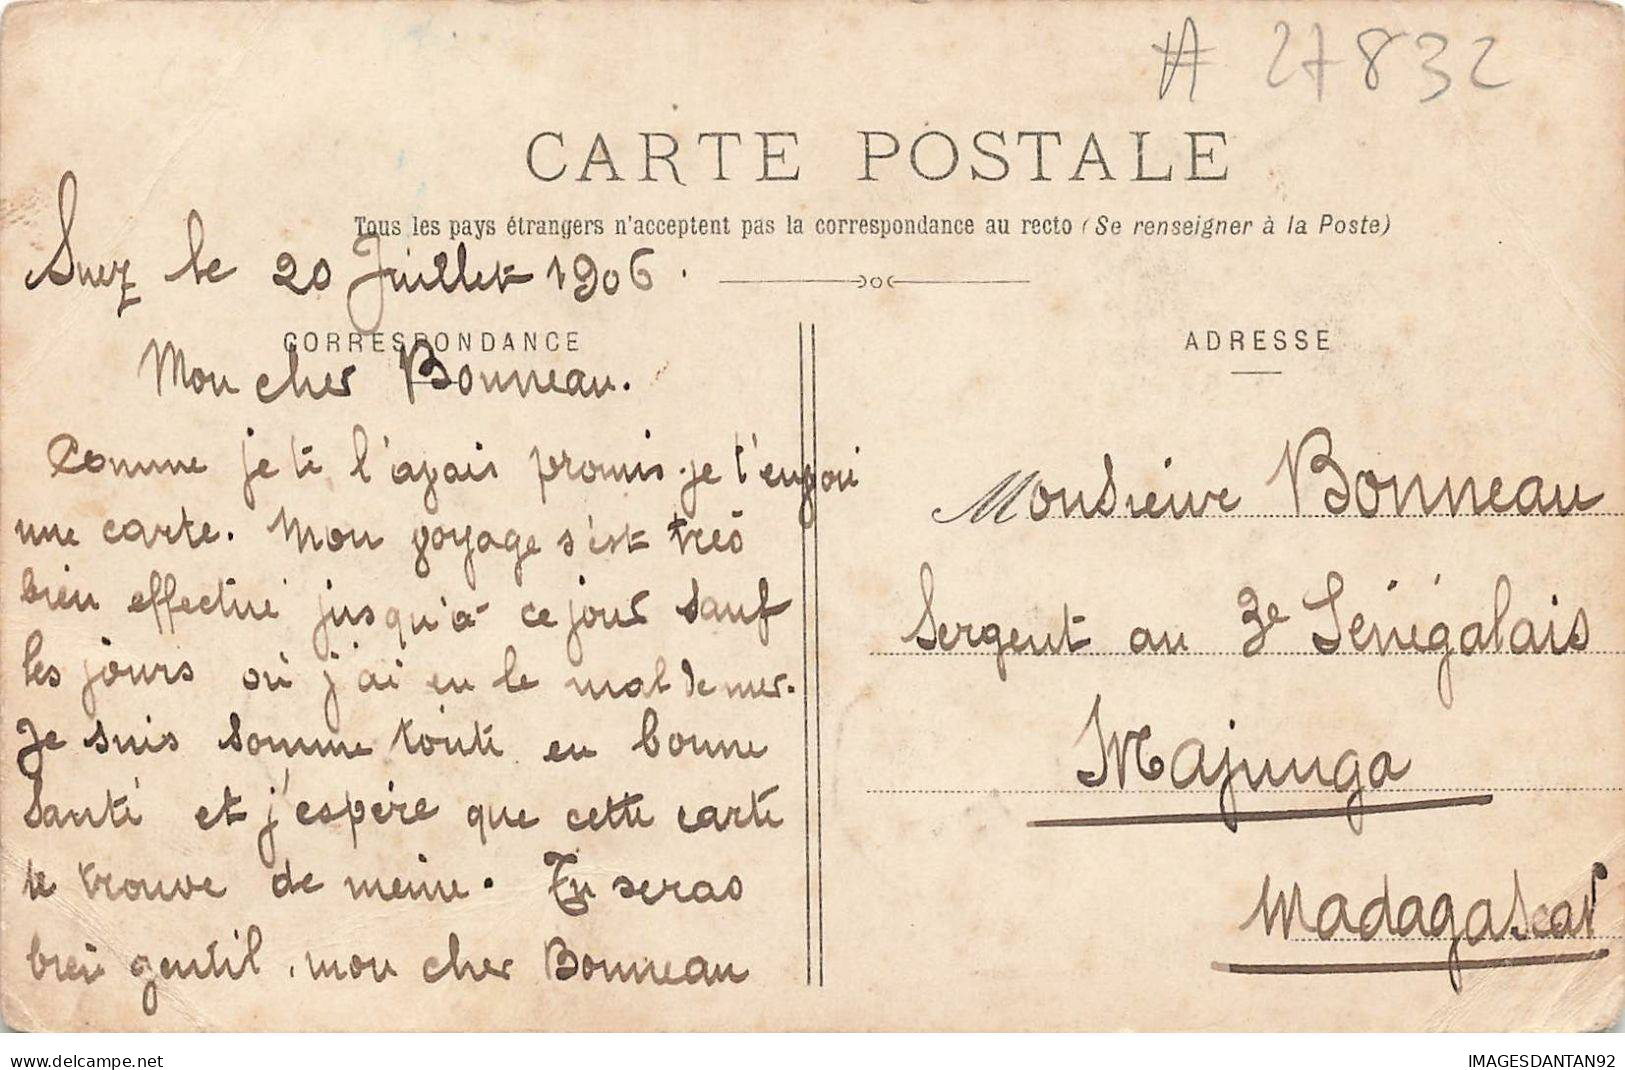 # 27832
CARTE POSTALE
Tous les pays étrangers n'acceptent pas la correspondance au recto (Se renseigner à la Poste)
Suez le 20 Juillet 1906.
CORRESPONDANCE
Mon cher Bonneau.
Comme je te l'avais promis je t'envoi
une carte. Mon voyage s'est très
bien effectué jusqu'à ce jour sauf
les jours où j'ai eu le mal de mer.
Je suis somme toute en bonne
santé et j'espère que cette carte
te trouve de meme. Tu seras
bien gentil, mon cher Bonneau
ADRESSE
Monsieur Bonneau
Sergent au 3e Sénégalais
Majunga
Madagascar
www.delcampe.net
IMAGESDANTAN92